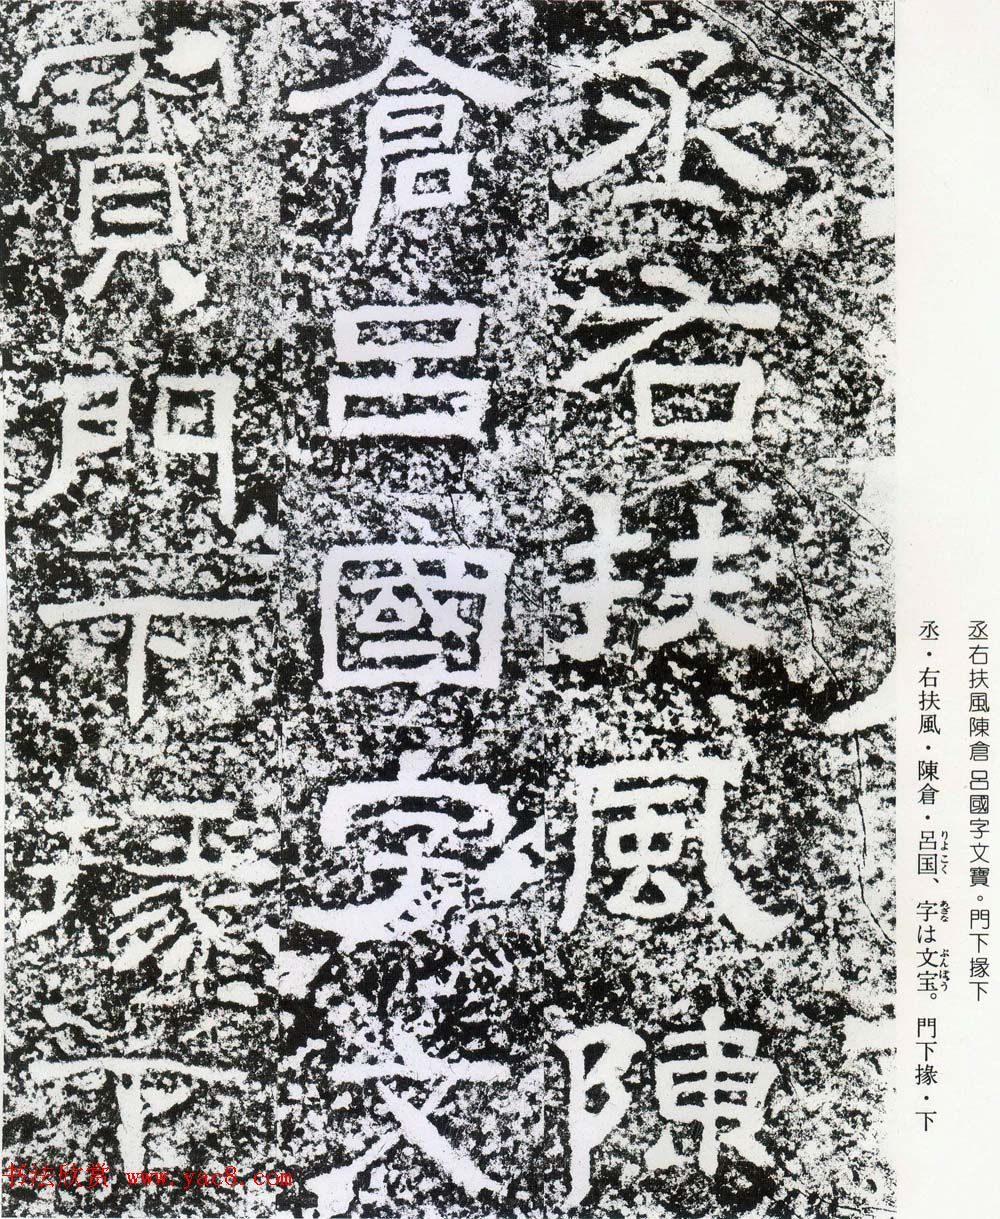 丞右扶風陳倉呂國字文寶。門下掾下
丞・右扶風・陳倉・呂国、字は文宝。門下掾・下
りよこく
あざな
ぶんぽう
丞右扶風陳
倉呂國字文
寶門下掾下
书法欣赏 www.yac8.com